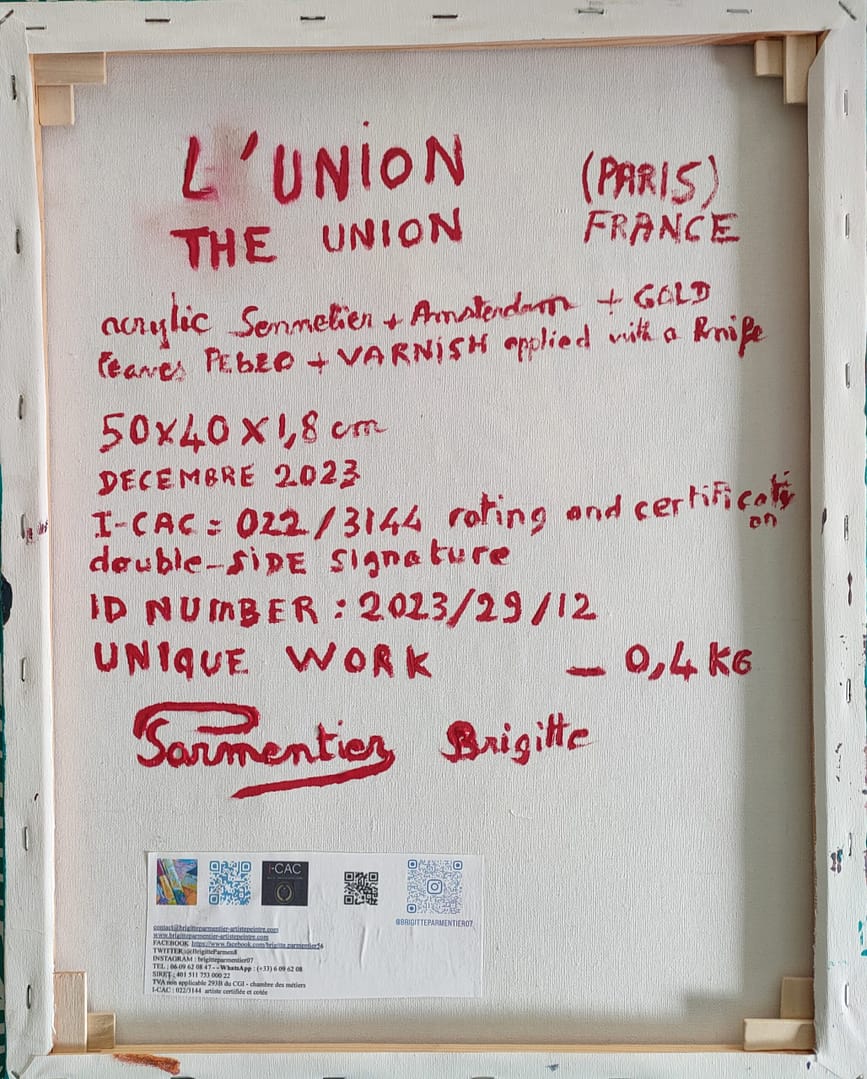 L'UNION (PARIS)
THE UNION FRANCE
acrylic Sennelier + Amsterdam + GOLD
leaves PEBEO + VARNISH applied with a Knife
50x40x1,8 cm
DECEMBRE 2023
I-CAC = 022/3144 rating and certificati
on
double-SiDE signature
ID NUMBER : 2023/29/12
UNIQUE WORK - 0,4 KG
Parmentier Brigitte
I-CAC
@BRIGITTEPARMENTIER07
contact@brigitteparmentier-artistepeintre.com
www.brigitteparmentier-artistepeintre.com
FACEBOOK https://www.facebook.com/brigitte.parmentier56
TWITTER:@BrigitteParmen8
INSTAGRAM : brigitteparmentier07
TEL : 06 09 62 08 47 - - WhatsApp : (+33) 6 09 62 08
SIRET : 401 511 753 000 22
TVA non applicable 293B du CGI - chambre des métiers
I-CAC : 022/3144 artiste certifiée et cotée